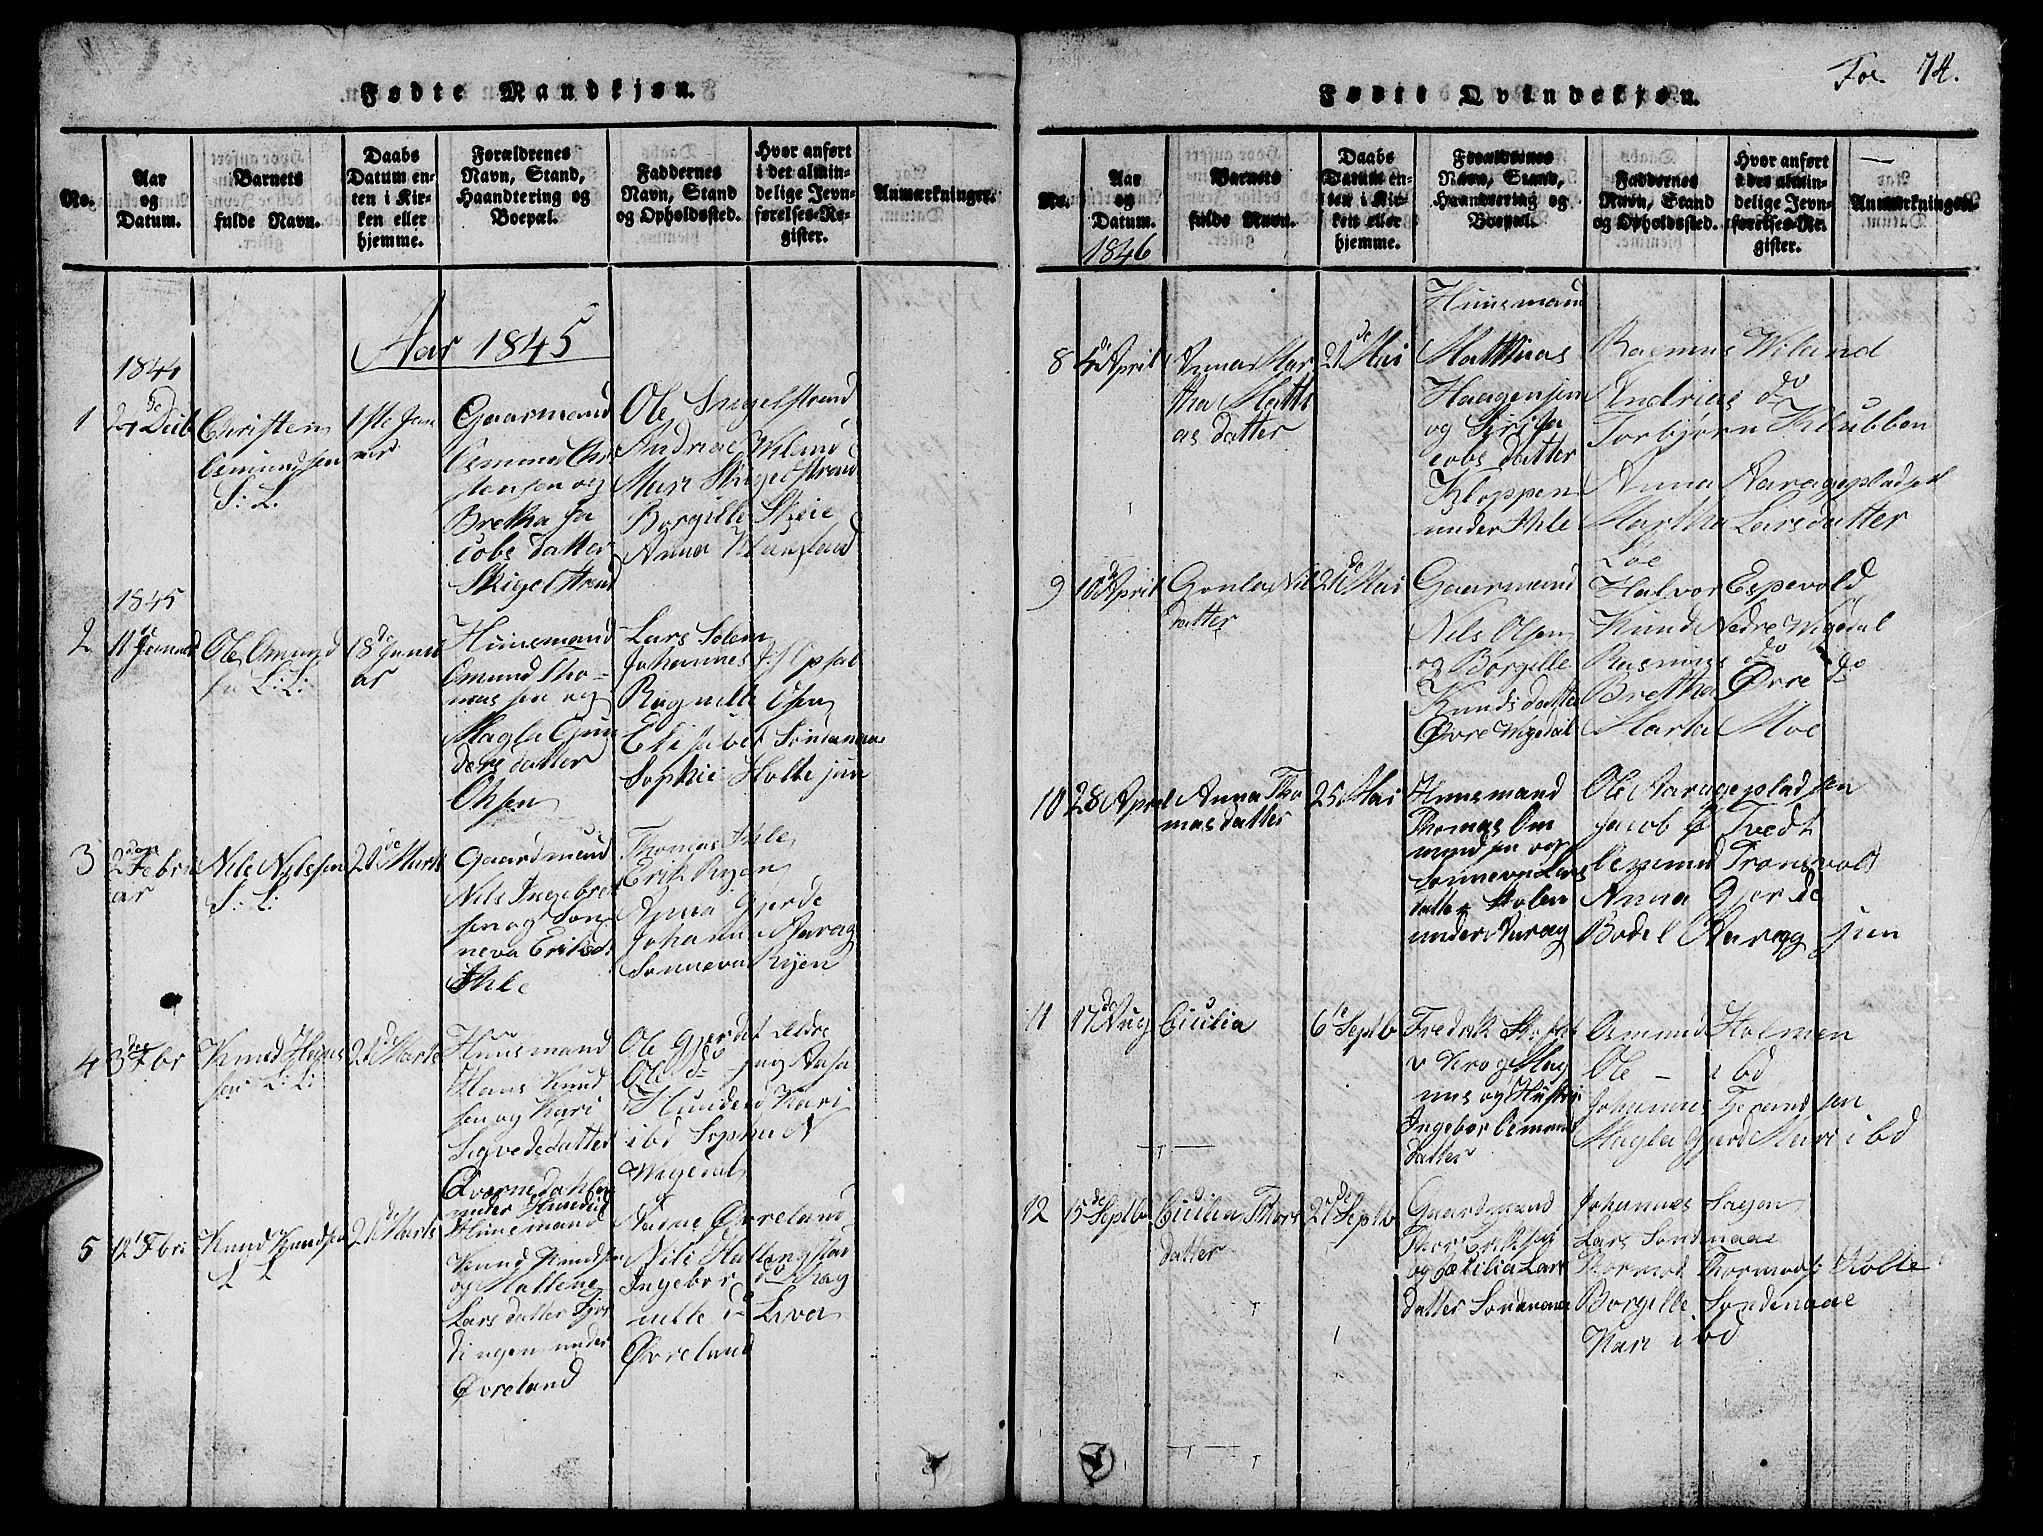 Fødte Mandkjøn.
No.
Aar og Datum.
Barnets fulde Navn.
Daabs Datum enten i Kirken eller hjemme.
Forældrenes Navn, Stand, Haandtering og Boepæl.
Faddernes Navn, Stand og Opholdssted.
Hvor anført i det almindelige Jevnførelses-Register.
Anmærkninger.
Aar 1845
1
Christen
S. L.
1ste Jan
Gaarmand
og
Bretha Ja
cobs datter
Skigelstrand
Ole Skigelstrand
Andreas Wiland
Mari Skigelstrand
Borgille Skeie
Anna
1845
2
11 Januar
Ole Osmund
sen L: L:
18de Janu
ar
Huusmand
Osmund Tho
mas sen og
Magla Gun
ders datter
Lars Solem
Johannes
Elisabet Søndenaae
Sophie Holte jun
3
2den Febru
ar
Nils Nilssen
S: L:
21de Marts
Gaardmand
Nils Ingebret
sen og Son
neva Eriksd
Ihle
Thomas Ihle
Erik Ryen
Anna Gjerde
Johanne Aarag
Sonneva Ryen
4
3die Fbr
Knud Hans
sen L: L:
21de Marts
Huusmand
Hans Knud
sen og Kari
Sigvedsdatter
Qværnedahlen
under Hunded
Ole Gjerde Ældre
Ole do jun Aasa
Hunded Kari
ibd Sophie N
Wigedal
5
12 Fbri
Knud Knudsen
L L
21de Marts
Huusmand
Knud Knudsen
og Mallene
Lars datter Fjor
dingen under
Øvreland
Aadne Øvreland
Nils Hallingstad
Ingebor
Øvreland
Fol. 74.
Fødte Qvindekjøn.
No.
Aar og Datum.
1846
Barnets fulde Navn.
Daabs Datum enten i Kirken eller hjemme.
Forældrenes Navn, Stand, Haandtering og Boepæl.
Faddernes Navn, Stand og Opholdssted.
Hvor anført i det almindelige Jevnførelses-Register.
Anmærkninger.
8
4de April
Anna Mar
tha Matth
as datter
21de Mai
Huusmand
Matthias
Haagensen
og Siri Ja
cobs datter
Kloppen
under Ihle
Rasmus Wiland
Andrias do
Torbjørn Klubben
Anna Aaragepladsen
Martha Larsdatter
Loe
9
10de April
Gonla Nils
datter
21de Mai
Gaarmand
Nils Olsen
og Borgille
Knuds datter
Øvre Wigedal
Halvor Espevold
Knud Nedre Wigedal
Rasmus do do
Bretha Øvre do
Marta Moe
10
28 April
Anna Tho
mas datter
25 Mai
Huusmand
Thomas Om
mundsen og
Sonneva Lars
datter Holen
under Aarag
Ole Aaragepladsen
Jacob Ø Tvedt
Osmund Transvolt
Anna Gjerde
Bodel Aarag jun
11
17de Aug
Cicilia
6te Septb
Fredrik
v Krog Mag
nus og Hustru
Ingebor Osmunds
datter
Osmund Holmen
Ole — ibd
Johannes Tjerandsen
Magla Gjerd Mari ibd
12
15de Septb
Cicilia Thors
datter
27de Septb
Gaardmand
Thor Eriksen
og Cæcilia Lars
datter Søndenaae
Johannes Sagen
Lars Søndenaae
Thormod Thormods Holte
Borgille Søndenaae
Kari ibd